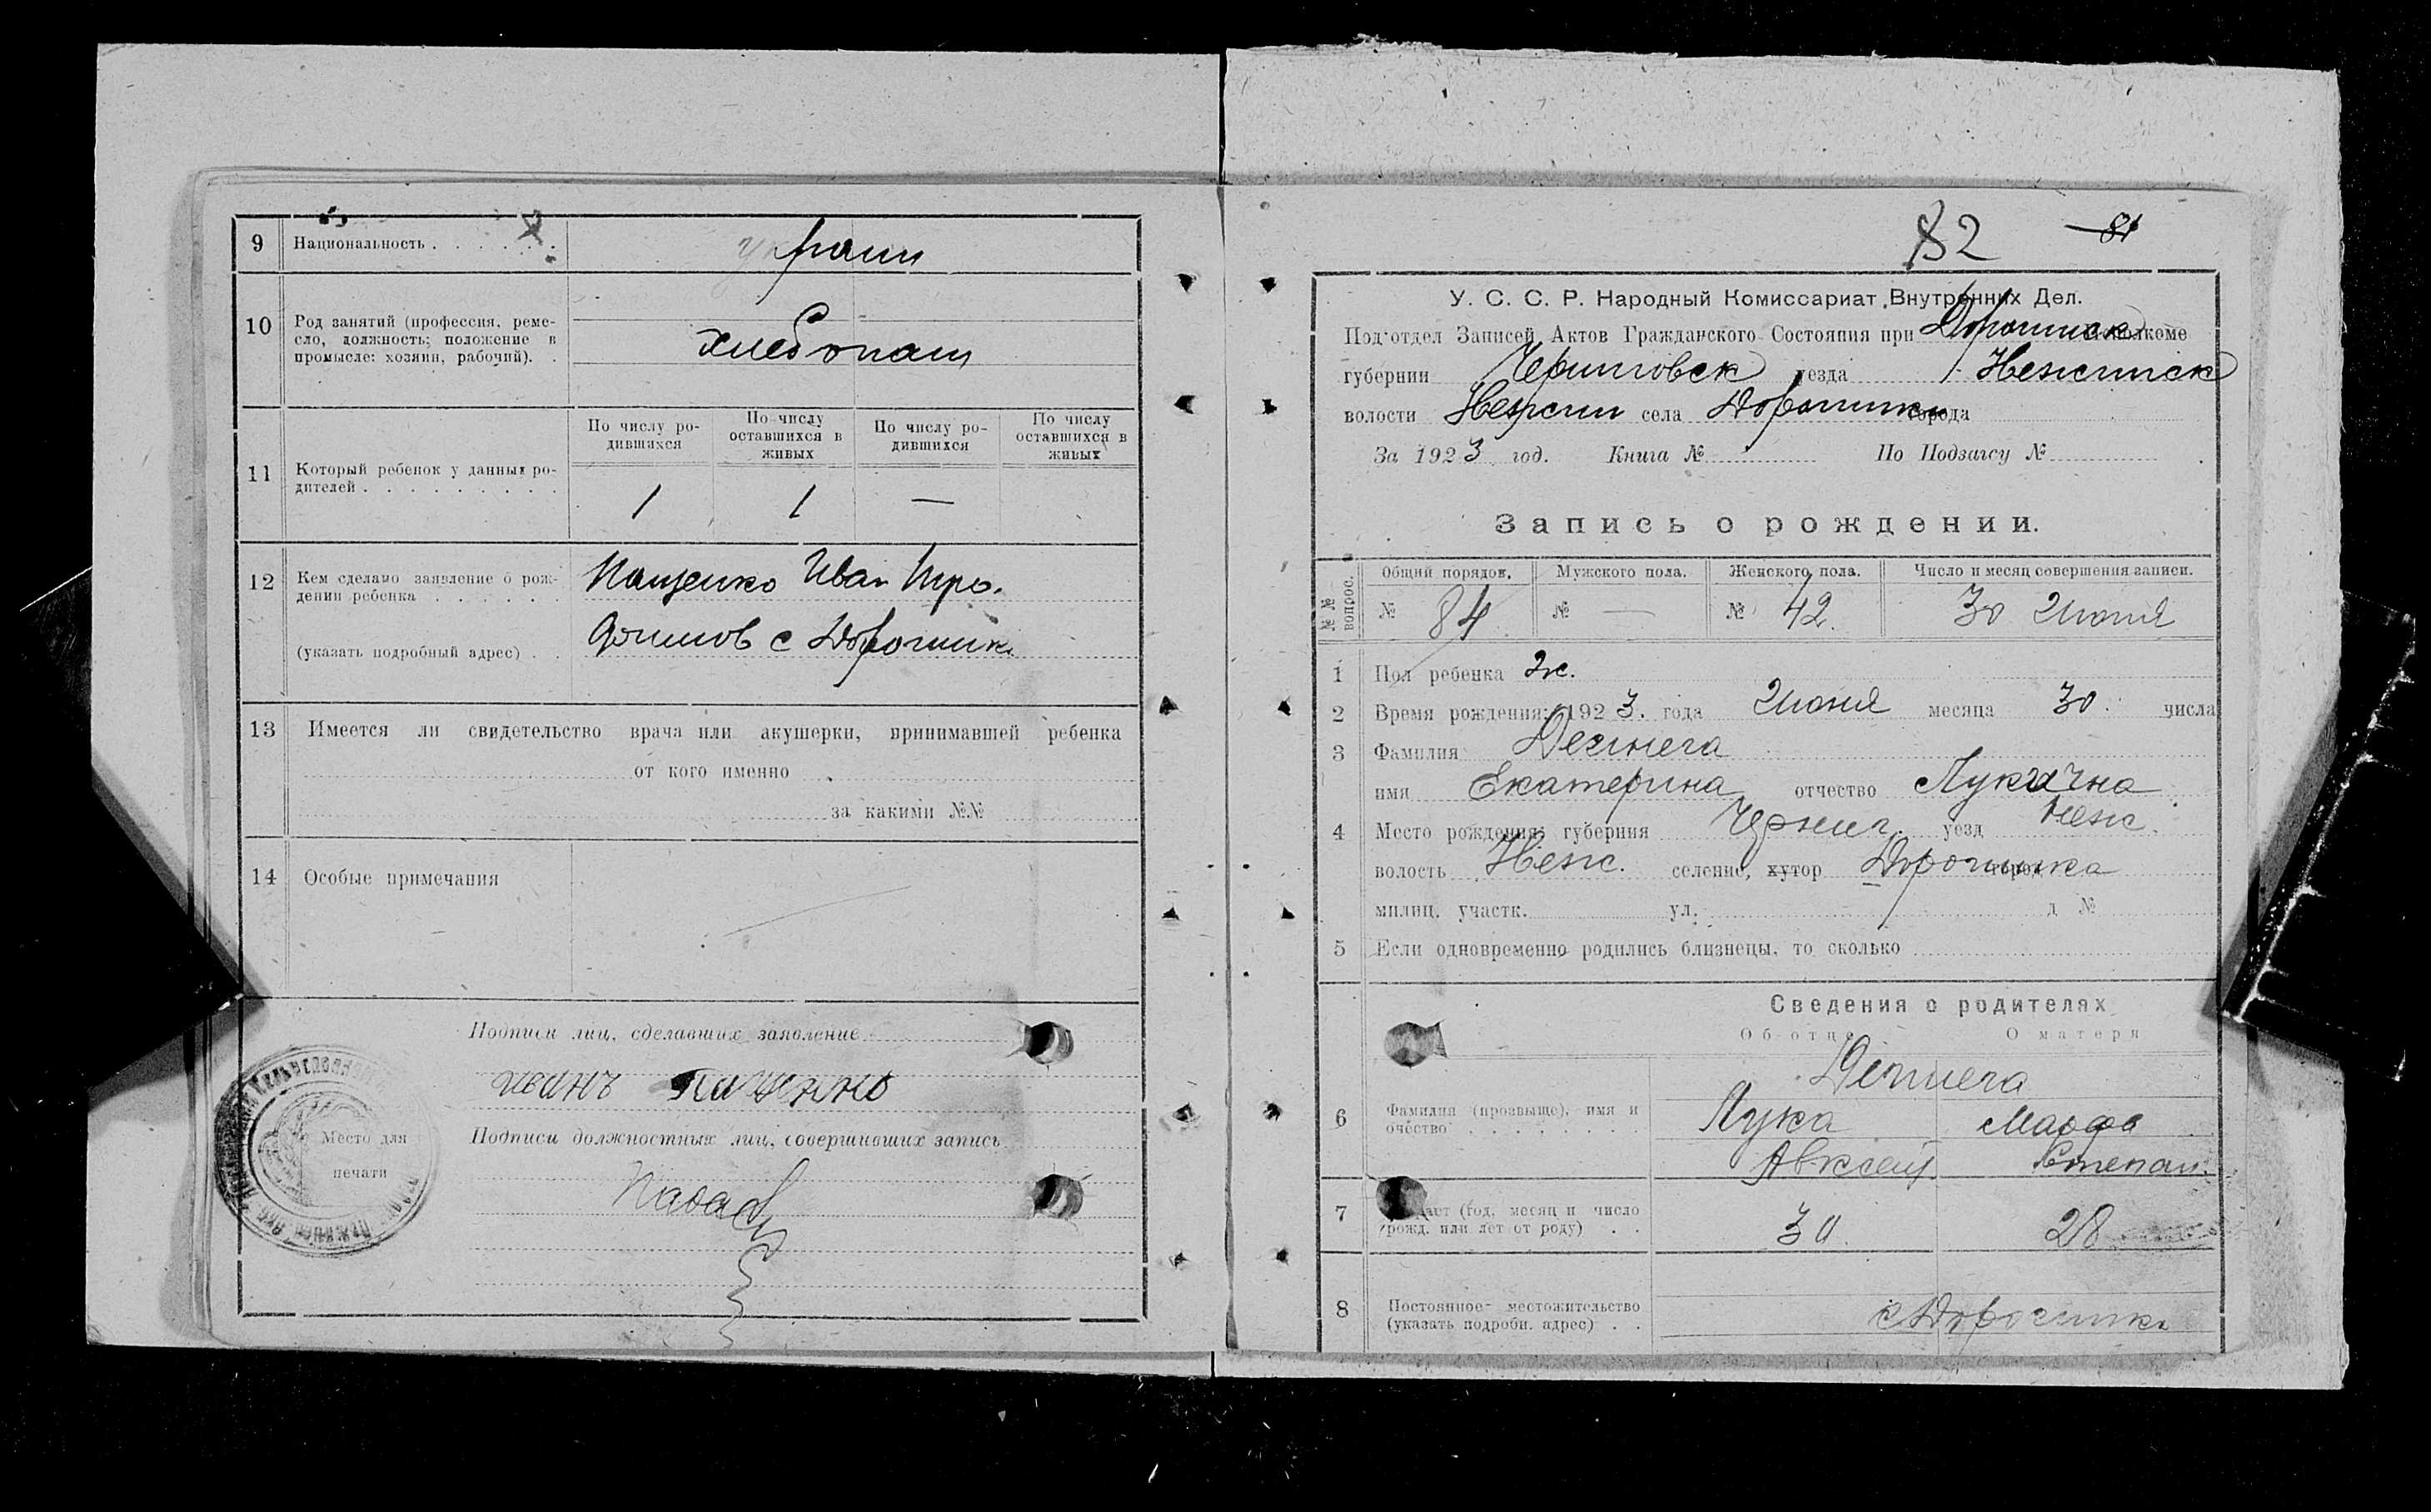 9 Национальность . . . . . . укра ин
10 Род занятий (профессия, реме-
сло, должность; положение в
промысле: хозяин, рабочий). .
хлебопаш
По числу ро-
дившихся
По числу
оставшихся в
живых
По числу ро-
дившихся
По числу
оставшихся в
живых
11 Который ребенок у данных ро-
дителей . . . . . . . . .
1 1 —
12 Кем сделано заявление о рож-
дении ребенка . . . . . .
Пащенко Иван Тро.
(указать подробный адрес) . .
с Дорогинк.
13 Имеется ли свидетельство врача или акушерки, принимавшей ребенка
от кого именно
за какими №№
14 Особые примечания
Подписи лиц, сделавших заявление
иванъ Пащенко
Место для
печати
Подписи должностных лиц, совершивших запись
82 81
У. С. С. Р. Народный Комиссариат Внутренних Дел.
Под'отдел Записей Актов Гражданского Состояния при Дорогинск исполкоме
губернии Черниговск уезда Нежинск
волости Нежин села Дорогинки города
За 1923 год. Книга № По Подзагсу №
Запись о рождении.
№№ вопрос.
Общий порядов. Мужского пола. Женского пола. Число и месяц совершения записи.
№ 84 № — № 42. 30 Июня
1 Пол ребенка ж.
2 Время рождения: 1923. года Июня месяца 30. числа
3 Фамилия
имя Екатерина отчество Лукична
4 Место рождения: губерния Черниг. уезд Неж.
волость Неж. селение, хутор Дорогинка город
милиц. участк. ул. д №
5 Если одновременно родились близнецы, то сколько
Сведения о родителях
Об отце О матери
6 Фамилия (прозвыще), имя и
очество . . . . . . . .
Лука Марфа
Авксент Степан.
7 (год, месяц и число
рожд. или лет от роду) . .
30. 28
8 Постоянное местожительство
(указать подробн. адрес) . .
с Дорогинка